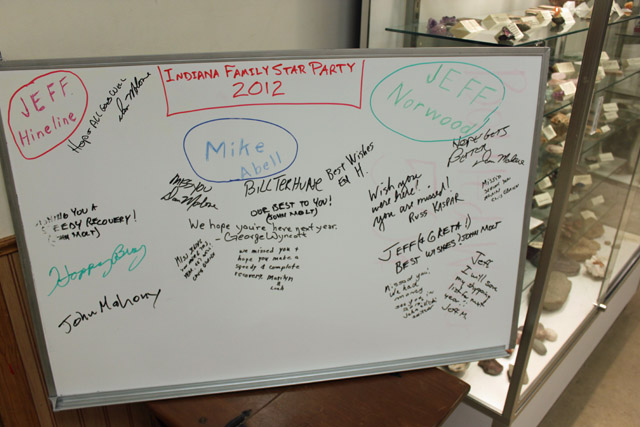 INDIANA FAMILY STAR PARTY
2012
JEFF
Hineline
Hope ALL Goes Well
Dan Malone
TO YOU A
EEDY RECOVERY!
(JOHN MOLT)
John Mahony
Mike
Abell
MISS YOU
Dan Malone
BILL TERHUNE
Best Wishes
Ed H.
OUR BEST TO YOU!
(JOHN MOLT)
We hope you're here next year.
- George Wyncott
we missed you &
hope you make a
speedy & complete
recovery. Marilyn
&
JEFF
Norwood
HOPE GETS
Better
Dan Malone
Wish you
were here!
you are missed!!
RUSS KASPAR
JEFF (& GRETA!)
BEST WISHES! JOHN MOLT
Missed you!
We had
money
Jeff
I will save
my shopping
list for next
year!!
Jeff M.